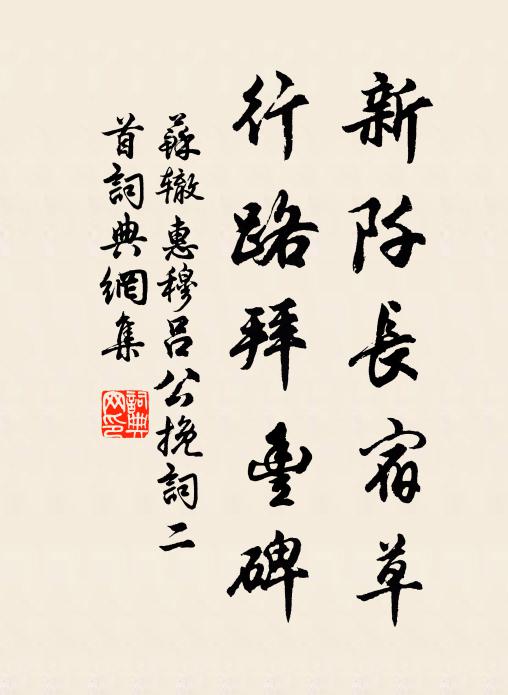 新阡長宿草
行路拜豊碑
蘇辙惠穆呂公挽詞二
首詞典網集
詞典
网印